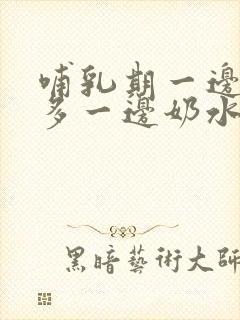 哺乳期一邊
多一邊奶水
黑暗藝術大師